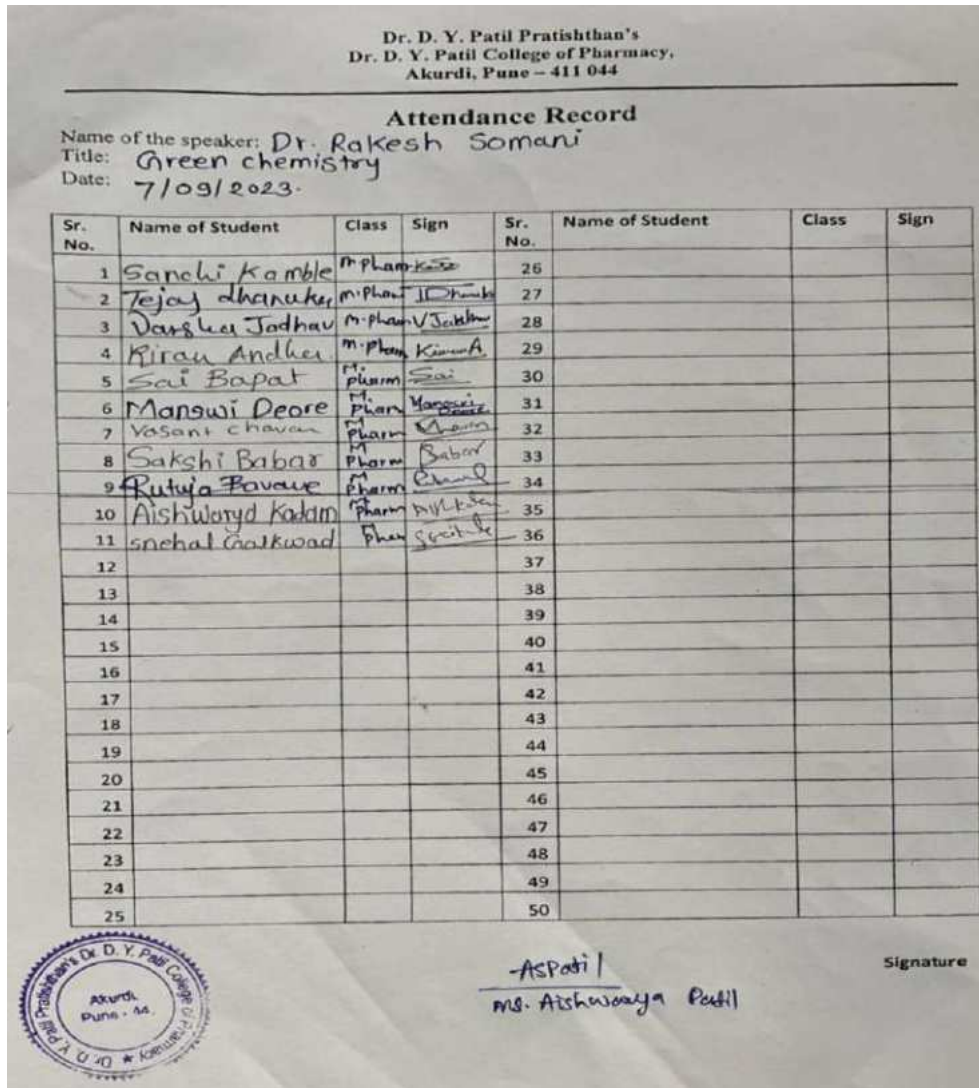 Dr. D. Y. Patil Pratishthan's
Dr. D. Y. Patil College of Pharmacy,
Akurdi, Pune – 411 044
Attendance Record
Name of the speaker: Dr. Rakesh Somani
Title: Green chemistry
Date: 7/09/2023.
Sr. No. Name of Student Class Sign Sr. No. Name of Student Class Sign
1 Sanchi Kamble m pham 26
2 Tejas dhanuke m.pham 27
3 Varsha Jadhav m.pham V Jadhav 28
4 Kiran Andhe m.pham Kiran A. 29
5 Sai Bapat M. pharm Sai 30
6 Manswi Deore M. pharm Manswi Deore 31
7 Vasant chavan M pharm Chavan 32
8 Sakshi Babar M pharm Babar 33
9 Rutuja Bavane M pharm 34
10 Aishwarya Kadam M pharm 35
11 snehal Gaikwad M phar 36
12 37
13 38
14 39
15 40
16 41
17 42
18 43
19 44
20 45
21 46
22 47
23 48
24 49
25 50
Dr. D. Y. Patil Pratishthan's Dr. D. Y. Patil College of Pharmacy ★
Akurdi,
Pune - 44.
ASPatil
Signature
Ms. Aishwarya Patil